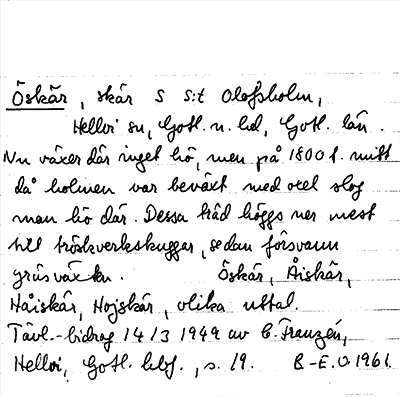 Öskär, skär S S:t Olofsholm,
Hellvi sn, Gotl. n. hd, Gotl. län.
Nu växer där inget hö, men på 1800 t. mitt
då holmen var beväxt med oxel slog
man hö där. Dessa träd höggs ner mest
till tröskverkskuggar, sedan försvann
gräsväxten. Öskär, Åiskär,
Håiskär, Hojskär, olika uttal.
Tävl.-bidrag 14/3 1949 av C. Franzén,
Hellvi, Gotl. , s. 19. B-E.O 1961.